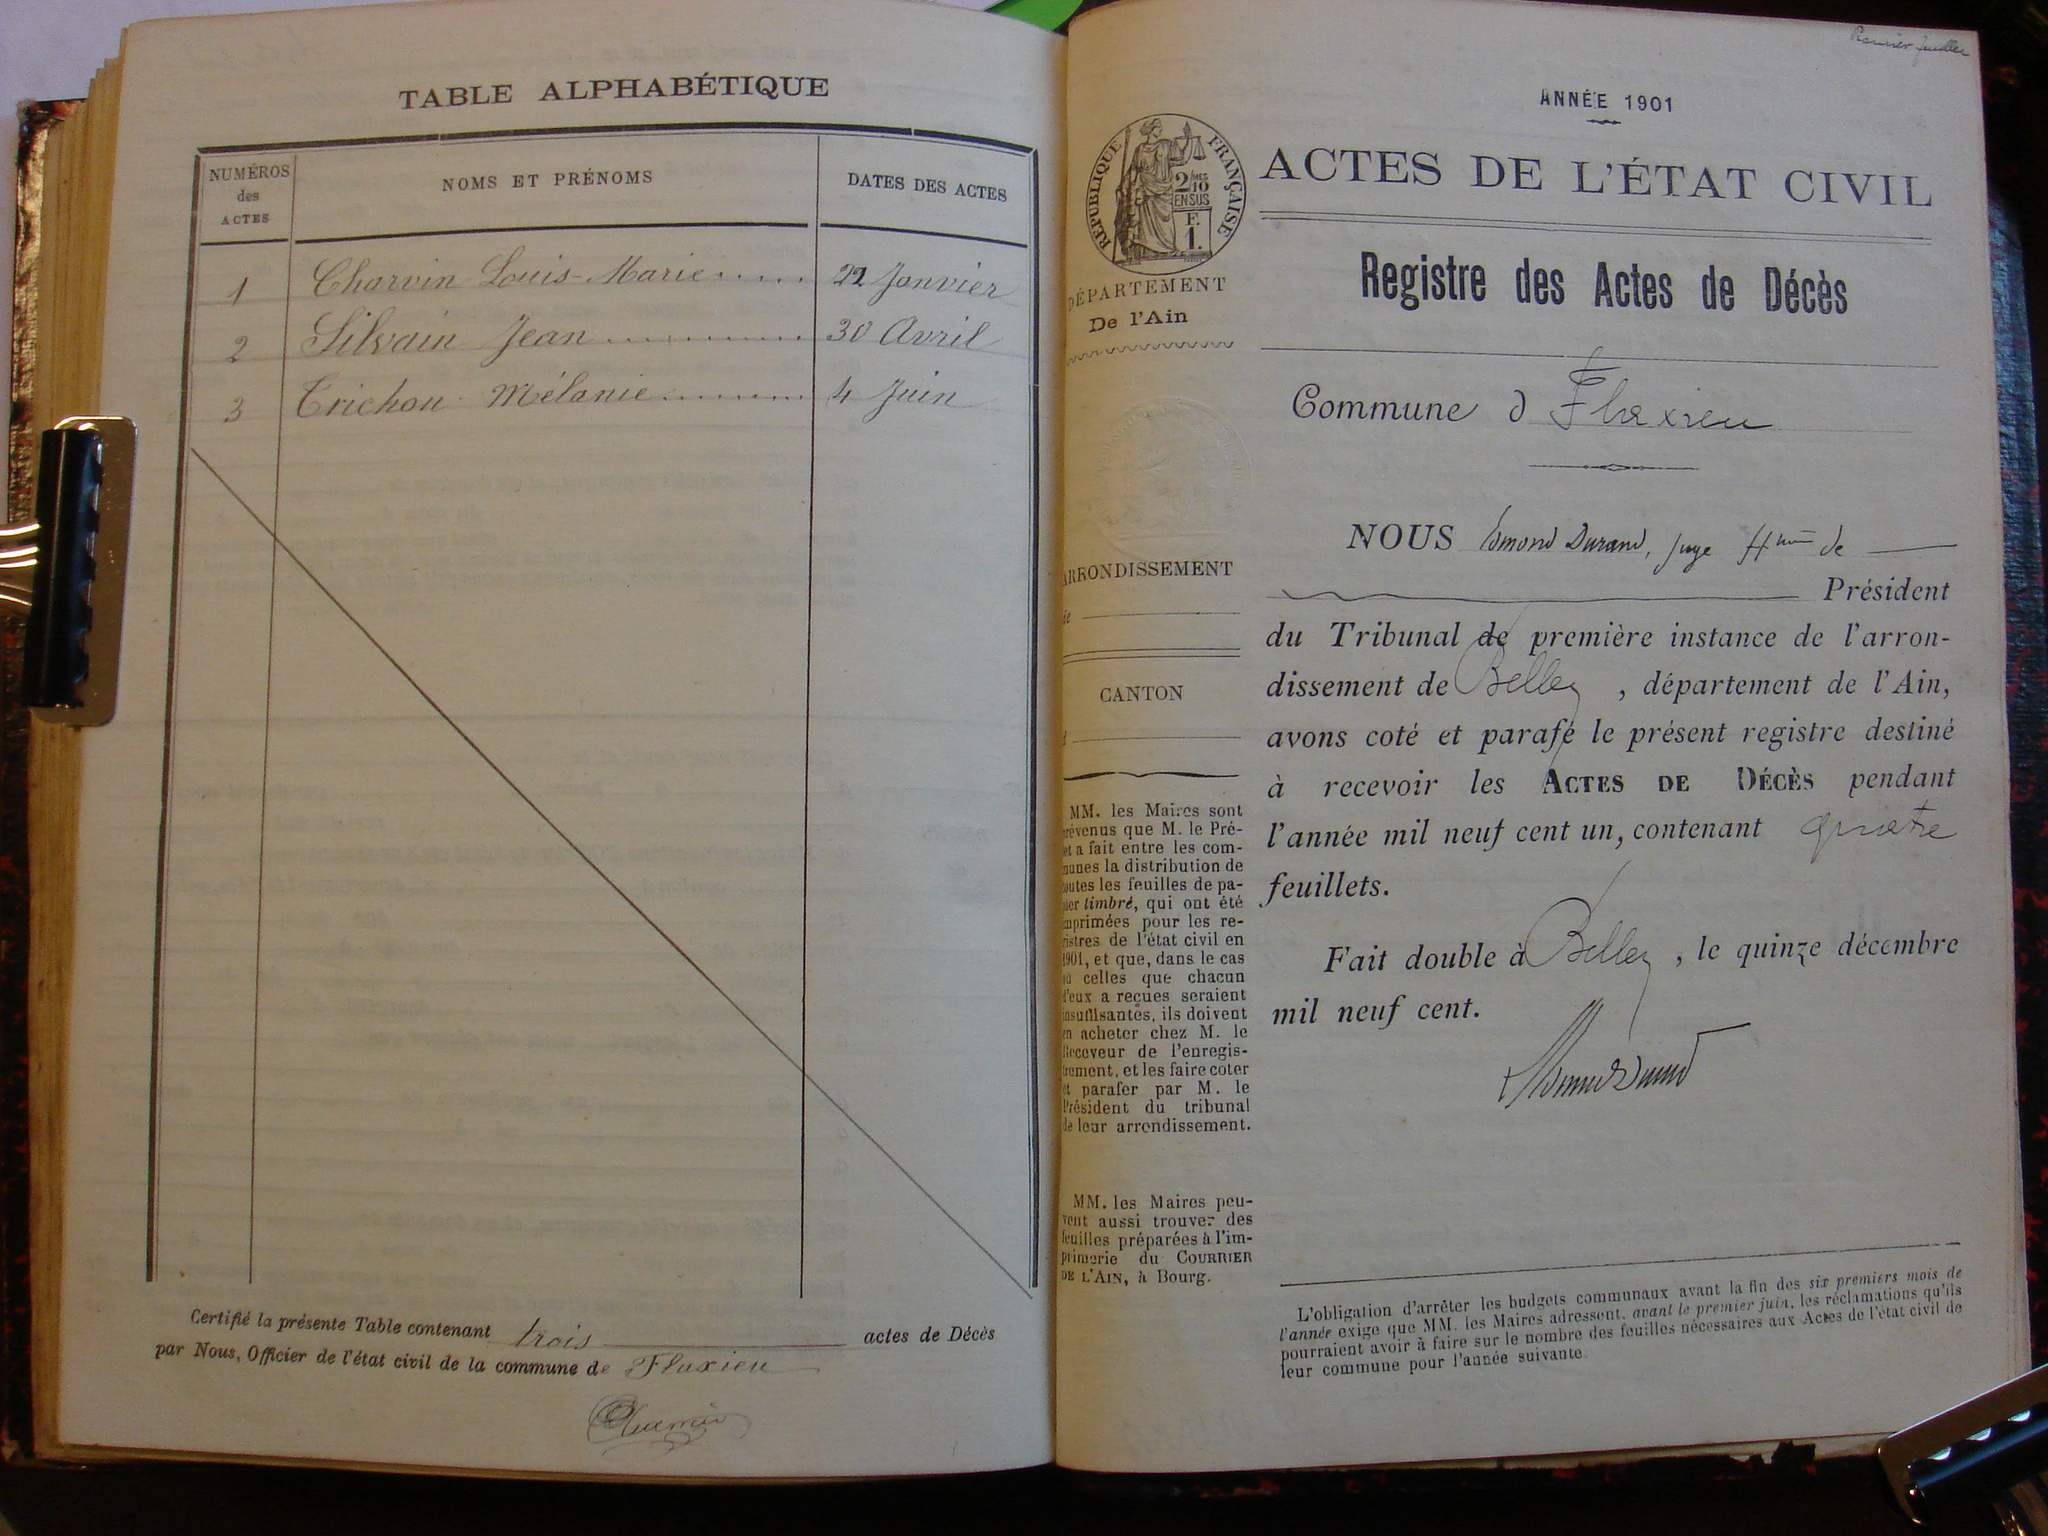 TABLE ALPHABÉTIQUE
NUMÉROS des ACTES
NOMS ET PRÉNOMS
DATES DES ACTES
1 Charvin Louis-Marie 22 Janvier
2 Silvain Jean 30 Avril
3 Trichon Mélanie 4 Juin
Certifié la présente Table contenant trois actes de Décès
par Nous, Officier de l'état civil de la commune de Flaxieu
Premier feuillet
ANNÉE 1901
RÉPUBLIQUE FRANÇAISE
2/10 MES
EN SUS
F.
1.
ACTES DE L'ÉTAT CIVIL
Registre des Actes de Décès
DÉPARTEMENT
De l'Ain
Commune d Flaxieu
ARRONDISSEMENT
CANTON
MM. les Maires sont
prévenus que M. le Pré-
et a fait entre les com-
munes la distribution de
toutes les feuilles de pa-
pier timbré, qui ont été
imprimées pour les re-
gistres de l'état civil en
1901, et que, dans le cas
où celles que chacun
d'eux a reçues seraient
insuffisantes, ils doivent
en acheter chez M. le
Receveur de l'enregis-
trement, et les faire coter
et parafer par M. le
Président du tribunal
de leur arrondissement.
MM. les Maires peu-
vent aussi trouver des
feuilles préparées à l'im-
primerie du COURRIER
DE L'AIN, à Bourg.
NOUS Edmond Durand, juge de
Président
du Tribunal de première instance de l'arron-
dissement de Belley, département de l'Ain,
avons coté et parafé le présent registre destiné
à recevoir les ACTES DE DÉCÈS pendant
l'année mil neuf cent un, contenant quatre
feuillets.
Fait double à Belley, le quinze décembre
mil neuf cent.
L'obligation d'arrêter les budgets communaux avant la fin des six premiers mois de
l'année exige que MM. les Maires adressent, avant le premier juin, les réclamations qu'ils
pourraient avoir à faire sur le nombre des feuilles nécessaires aux Actes de l'état civil de
leur commune pour l'année suivante.